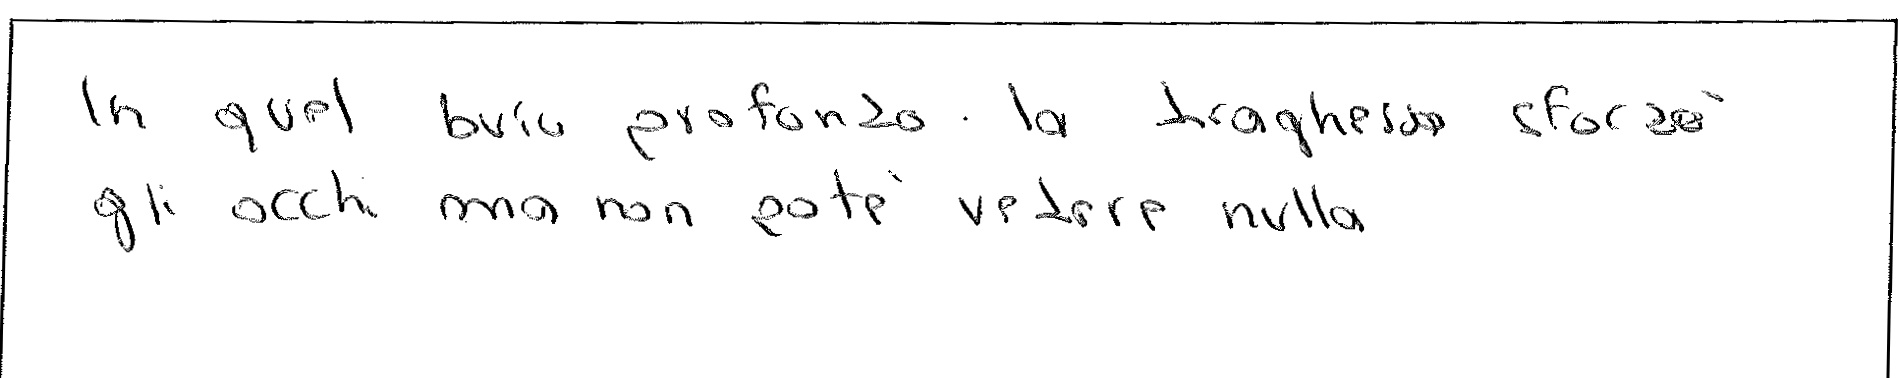 In quel buio profondo. la draghessa sforzò
gli occhi ma non potè vedere nulla